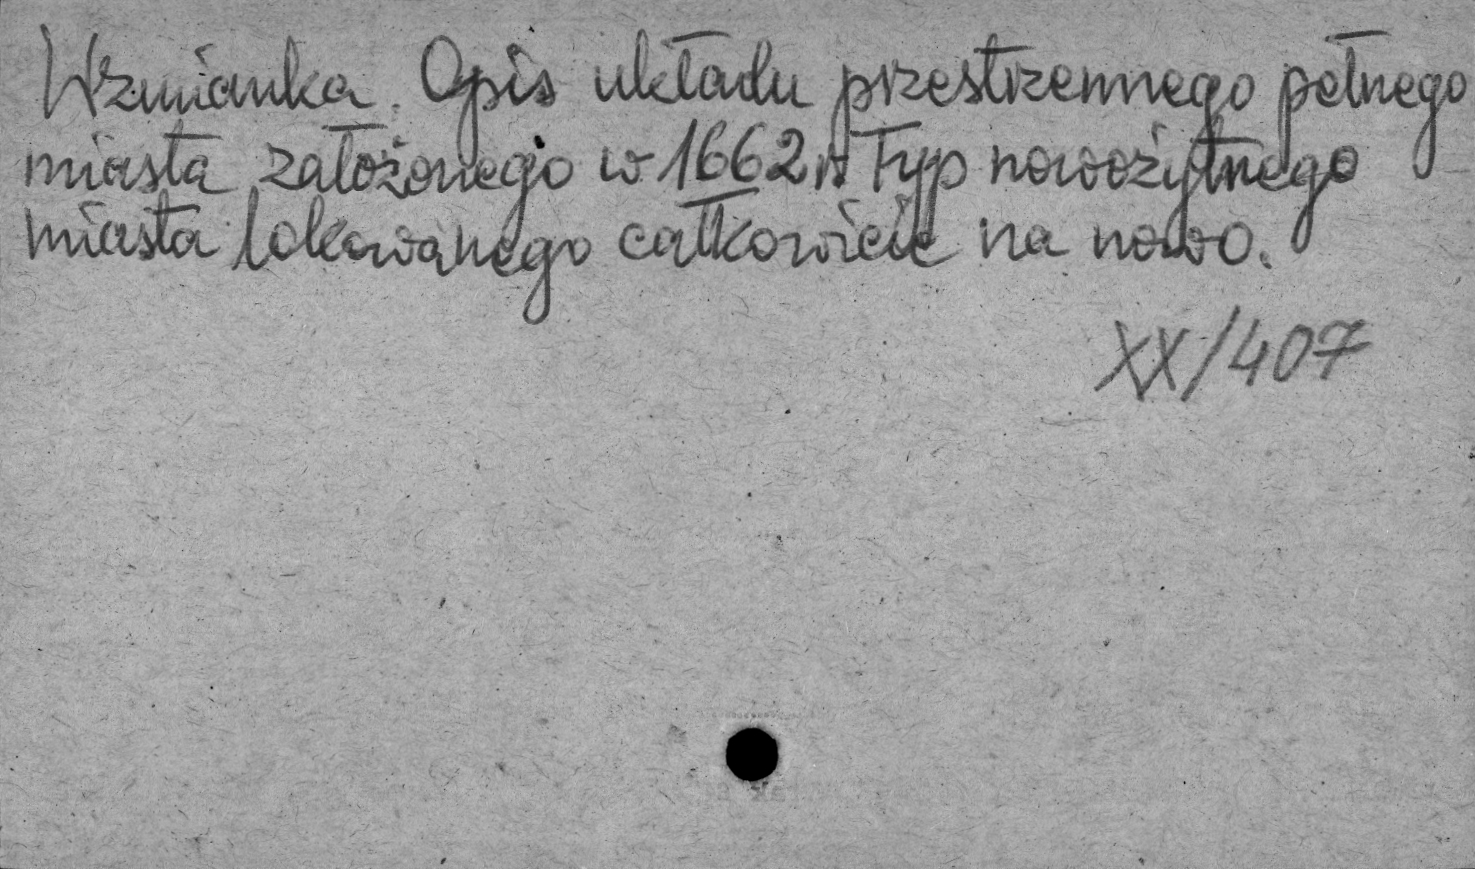 Wzmianka. Opis układu przestrzennego pełnego
miasta założonego w 1662 r. Typ nowożytnego
miasta lokowanego całkowicie na nowo.
XX/407